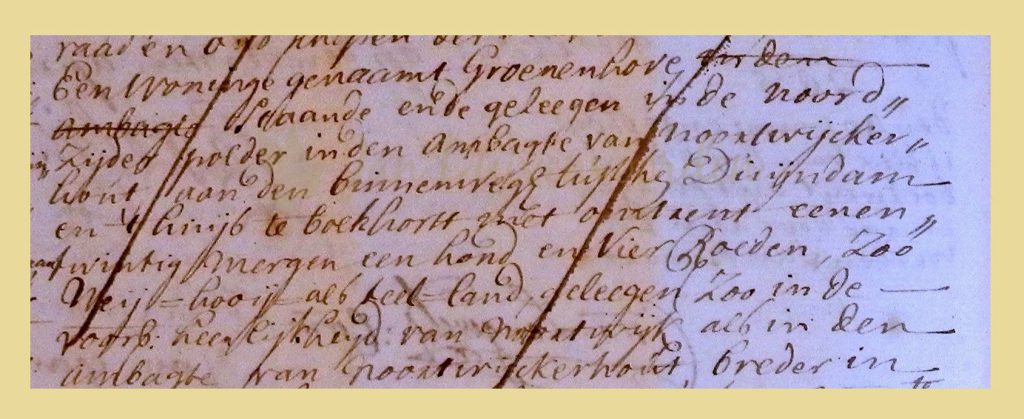 raad en
Een Woninge genaamt Groenenhove in dem
ambagte Staande ende geleegen in de noord„
Zijder polder in den Ambagte van Noortwijcker„
hout aan den binnenweg tussche Duijndam
en 't huijs te boekhorst met omtrent eenen„
twintig Mergen een hond en Vier Roeden Zoo
Weij-hooij als teel-land, geleegen Zoo in de
voors: heerlijkheijd van Noortwijk als in den
Ambagte van Noortwijckerhout, breder in